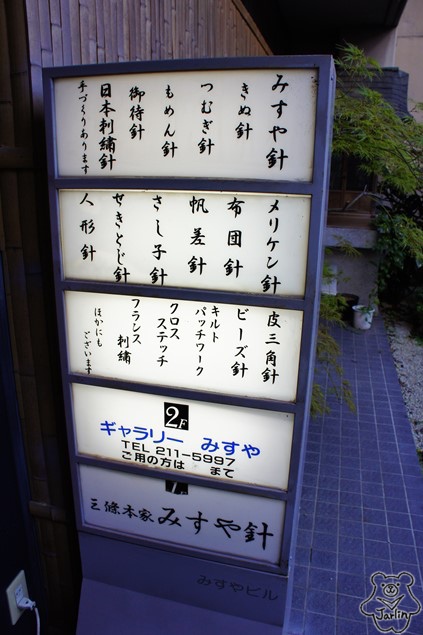 みすや針
きぬ針
つむぎ針
もめん針
御待針
日本刺繍針
手づくりあります
メリケン針
布団針
帆差針
さし子針
せきとじ針
人形針
皮三角針
ビーズ針
キルト
パッチワーク
クロス
ステッチ
フランス
刺繍
ほかにも
ございます
2F
ギャラリー みすや
TEL 211-5997
ご用の方は まで
三條本家 みすや針
みすやビル
Jarlin